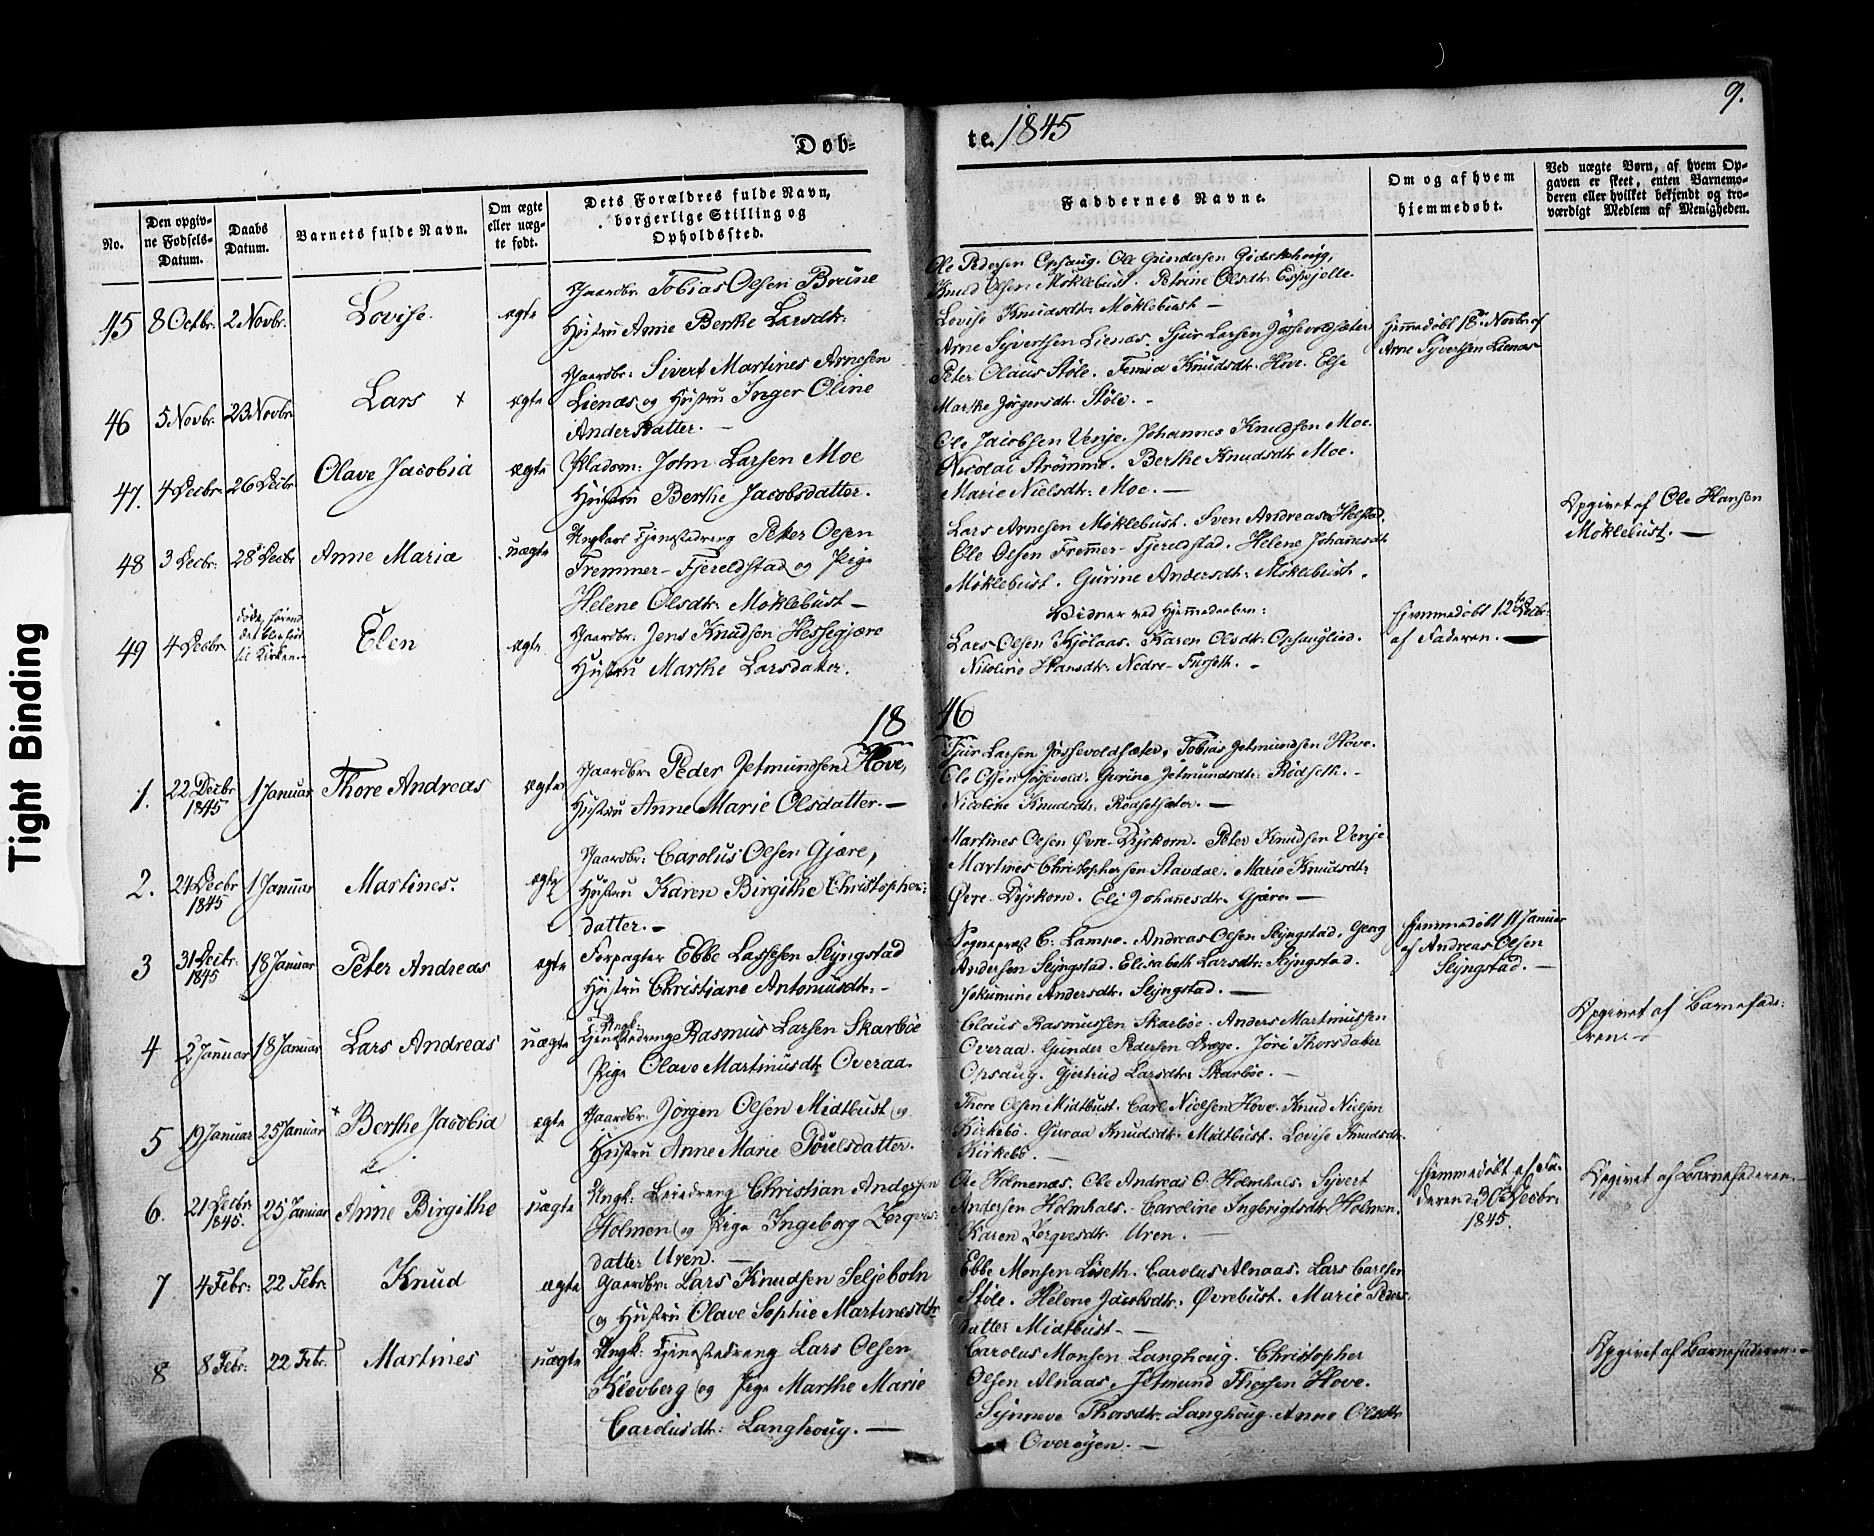 Tight Binding
Døb-
te. 1845
9.
No.
Den opgiv-
ne Fødsels-
Datum.
Daabs
Datum.
Barnets fulde Navn.
Om ægte
eller uæg-
te født.
Dets Forældres fulde Navn,
borgerlige Stilling og
Opholdssted.
Faddernes Navne.
Om og af hvem
hjemmedøbt.
Ved uægte Børn, af hvem Op-
gaven er skeet, enten Barnemo-
deren eller hvilket bekjendt og tro-
værdigt Medlem af Menigheden.
45
8 Octbr.
2 Novbr.
Lovise.
ægte
Gaardbr: Tobias Olsen Brune
Hustru Anne Berthe Larsdtr:
Ole Pedersen Opsaug. Ole Gundersen
Knud Olsen Möklebust. Petrine Olsdtr:
Lovise Knudsdtr: Möklebust —
46
5 Novbr.
23 Novbr.
Lars +
ægte
Gaardbr: Sivert Martines Arnesen
Lienæs og Hustru Inger Oline
Andersdatter. —
Arne Syvertsen Lienæs. Sjur Larsen Jössevoldsæter
Peter Olaus Støle. Knudsdtr. Hove. Else
Marthe Jörgensdtr. Støle. -
Hjemmedöbt 18de Novbr. af
Arne Syvertsen Lienæs
47.
4 Decbr.
26 Decbr
Olave Jacobia
ægte
Pladsm: John Larsen Moe
Hustru Berthe Jacobsdatter.
Ole Jacobsen Venje. Johannes Knudsen Moe.
Nicolai Strömme. Berthe Knudsdtr Moe.
Marie Nielsdtr: Moe. —
48
3 Decbr:
28 Decbr
Anne Maria
uægte
Ungkarl Tjenestedreng Petter Olsen
Fremmer-Fjereldstad og Pige
Helene Olsdtr: Möklebust —
Lars Arnesen Möklebust. Sven Andreas
Ole Olsen Fremmer-Fjereldstad. Helene Johannesdtr
Möklebust. Gurine Andersdtr: Möklebust.
Opgivet af Ole Hansen
Möklebust. —
49
4 Decbr
döde, förend
det blev
til Kirken
Elen
ægte
Gaardbr: Jens Knudsen Hessegjære
Hustru Marthe Larsdatter.
Vidner ved Hjemmedaaben:
Lars Olsen Kjölaas. Karen Olsdtr: Opsauglied.
Nicoline Hansdtr: Nedre-Furseth. -
Hjemmedöbt 12te Decbr
af Faderen. —
18 46
1.
22 Decbr
1845
1 Januar
Thore Andreas
ægte
Gaardbr. Peder Jetmundsen Hove,
Hustru Anne Marie Olsdatter. —
Sjur Larsen Jössevoldsæter, Tobias Jetmundsen Hove.
Ole Olsen Jössevold. Gurine Jetmundsdtr: Rödseth. -
Nicoline Knudsdtr: Rödsetsæter. —
2.
24 Decbr
1845
1 Januar
Martines.
ægte
Gaardbr: Carolus Olsen Gjære,
Hustru Karen Birgithe Christopher-
datter. -
Martines Olsen Øvre-Dyrkorn. Peter Knudsen Venje
Martines Christophersen Stavdal. Marie Knudsdtr
Øvre-Dyrkorn. Eli Johannesdtr. Gjære —
3
31 Decbr.
1845
18 Januar
Peter Andreas
ægte
Forpagter Ebbe Lassesen Slyngstad
Hustru Christiane Antoniusdtr: -
Sognepræst C. Lampe. Andreas Olsen Slyngstad. Georg
Andersen Slyngstad. Elisabeth Larsdtr: Slyngstad.
Jokumine Andersdtr. Slyngstad. —
Hjemmedöbt 11 Januar
af Andreas Olsen
Slyngstad. —
4
2 Januar
18 Januar
Lars Andreas
uægte
Ungk:
Tjenestedreng Rasmus Larsen Skarböe
Pige Olave Martinusdtr Overaa.
Claus Rasmussen Skarböe. Anders Martinussen
Overaa. Gunder Pedersen Dræge. Jöri Thorsdatter
Opsaug. Gjertrud Larsdtr: Skarböe. -
Opgivet af Barnefade-
ren —
5
19 Januar
25 Januar
+ Berthe Jacobia
ægte
Gaardbr: Jörgen Olsen Midtbust og
Hustru Anne Marie Poulsdatter.
Thore Olsen Midtbust. Carl Nielsen Hove. Knud Nielsen
Kirkebö. Guraa Knudsdtr. Midtbust. Lovise Knudsdtr.
Kirkebö. —
6.
21 Decbr
1845.
25 Januar
Anne Birgithe
uægte
Ungk: Leiedreng Christian Andersen
Holmen og Pige Ingeborg Zerqves-
datter Uren. —
Ole Holmenæs. Ole Andreas O. Holmhals. Syvert
Andersen Holmhals. Caroline Ingbrigtsdtr Holmen.
Karen Zerqvesdtr. Uren. —
Hjemmedöbt af Fa-
deren d: 30 Decbr.
1845.
Opgivet af Barnefaderen. -
7
4 Febr:
22 Febr.
Knud
ægte
Gaardbr: Lars Knudsen Seljebotn
og Hustru Olave Sophie Martinesdtr.
Ebbe Monsen Löseth. Carolus Alnaas. Lars Carlsen
Støle. Helene Jacobsdtr. Øvrebust. Marie Peders-
datter Midtbust —
8
8 Febr:
22 Febr.
Martines
uægte
Ungk: Tjenestedreng Lars Olsen
Klevberg og Pige Marthe Marie
Carolusdtr: Langhoug. —
Carolus Monsen Langhoug. Christopher
Olsen Alnaas. Jetmund Thorsen Hove.
Synneve Thorsdtr. Langhoug. Anne Olsdtr
Overöyen. —
Opgivet af Barnefaderen. -